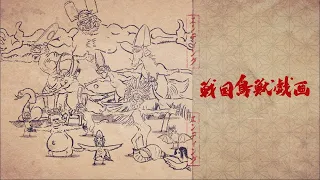 戦国鳥獣戯画